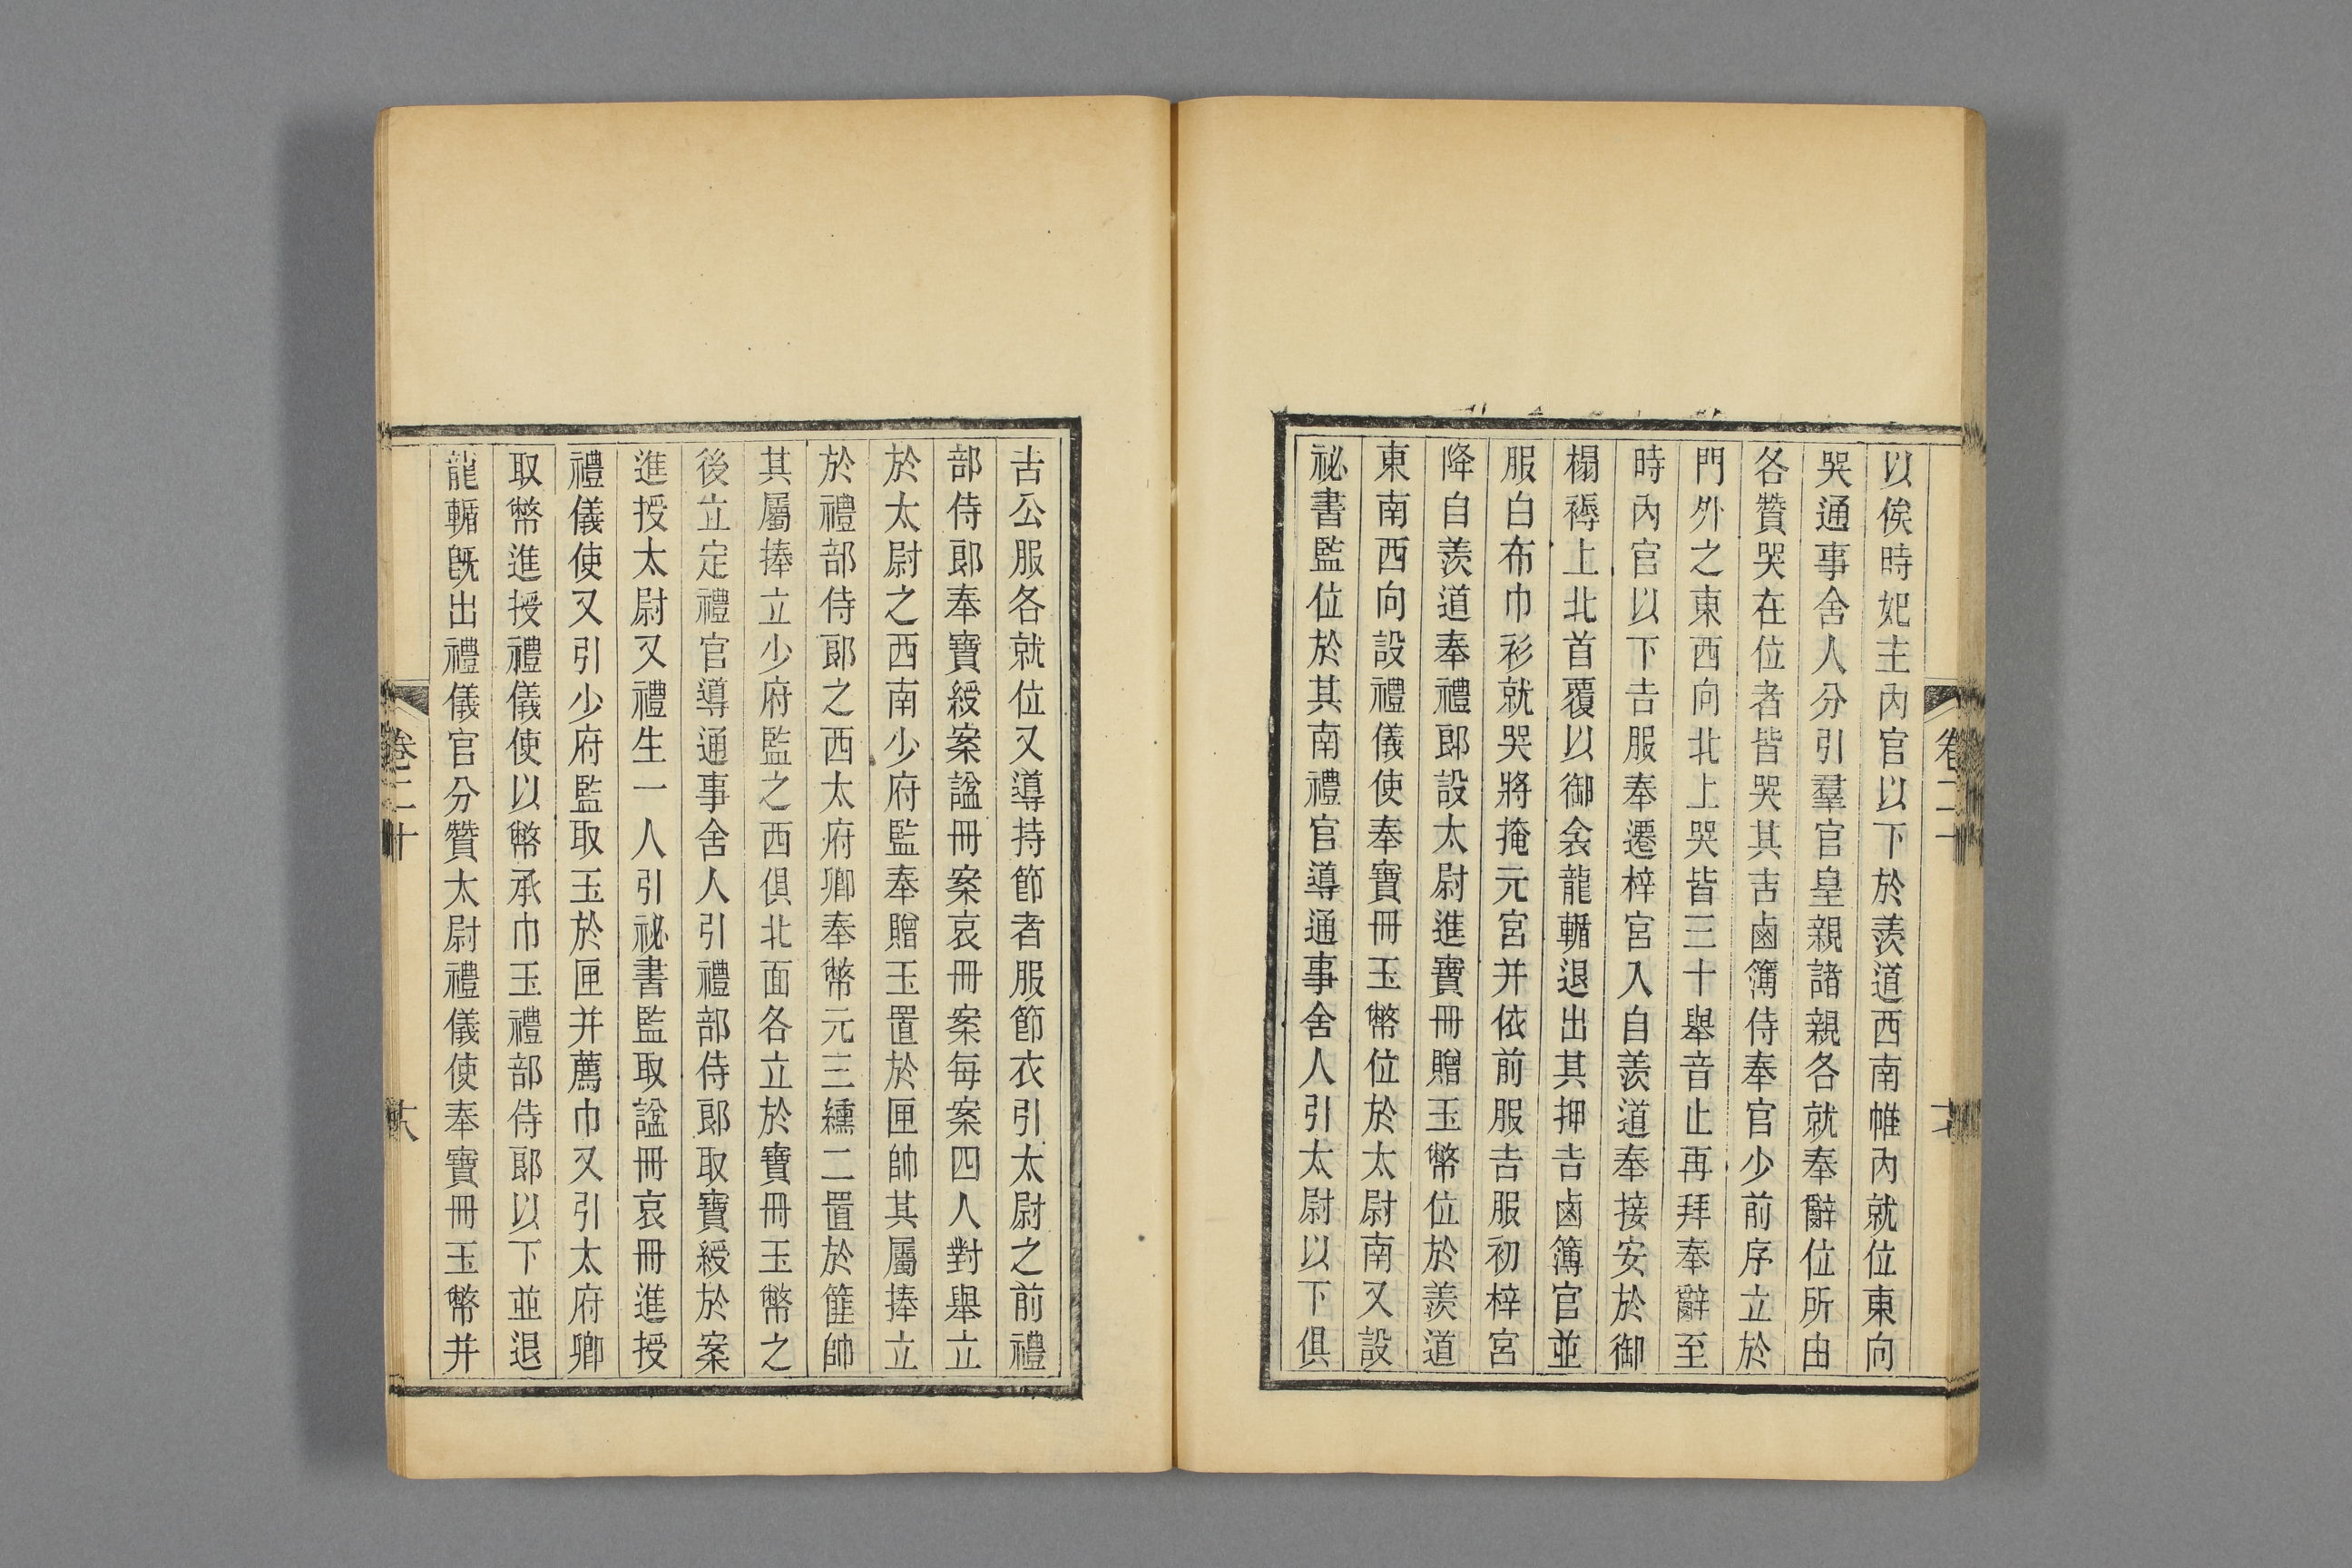 以俟時妃主內官以下於羨道西南帷內就位東向
哭通事舍人分引羣官皇親諸親各就奉辭位所由
各贊哭在位者皆哭其吉鹵簿侍奉官少前序立於
門外之東西向北上哭皆三十舉音止再拜奉辭至
時內官以下吉服奉遷梓宮入自羨道奉接安於御
榻褥上北首覆以御衾龍輴退出其押吉鹵簿官並
服白布巾衫就哭將掩元宮并依前服吉服初梓宮
降自羨道奉禮郎設太尉進寶冊贈玉幣位於羨道
東南西向設禮儀使奉寶冊玉幣位於太尉南又設
祕書監位於其南禮官導通事舍人引太尉以下俱
吉公服各就位又導持節者服節衣引太尉之前禮
部侍郎奉寶綬案諡冊案哀冊案每案四人對舉立
於太尉之西南少府監奉贈玉置於匣帥其屬捧立
於禮部侍郎之西太府卿奉幣元三纁二置於篚帥
其屬捧立少府監之西俱北面各立於寶冊玉幣之
後立定禮官導通事舍人引禮部侍郎取寶綬於案
進授太尉又禮生一人引祕書監取諡冊哀冊進授
禮儀使又引少府監取玉於匣并薦巾又引太府卿
取幣進授禮儀使以幣承巾玉禮部侍郎以下並退
龍輴旣出禮儀官分贊太尉禮儀使奉寶冊玉幣并
卷二十